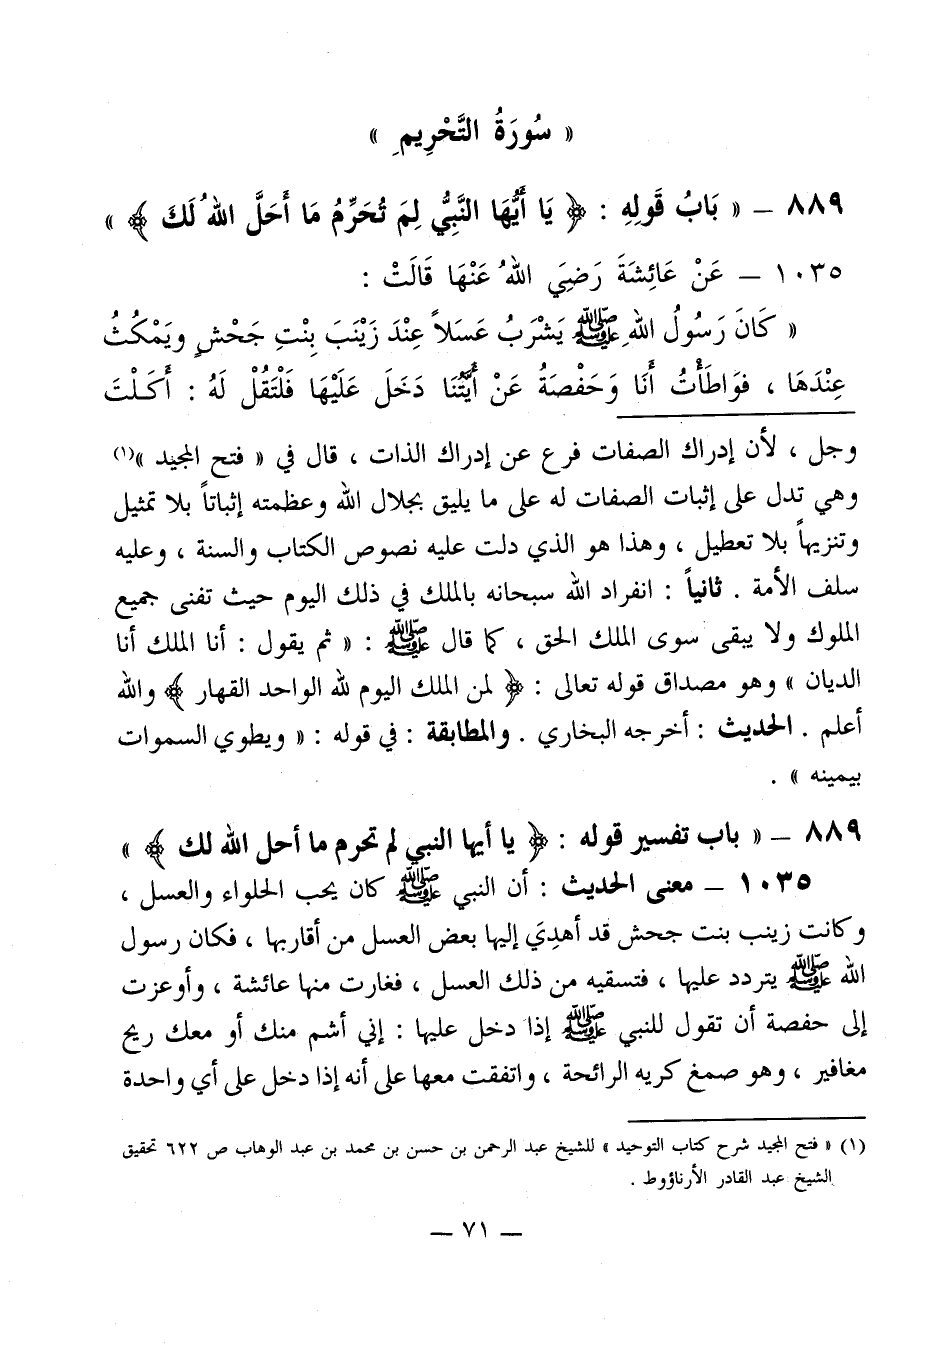 « سُورَةُ التَّحْرِيمِ »
٨٨٩ – « بَابُ قَوْلِهِ : ﴿ يَا أَيُّهَا النَّبِيُّ لِمَ تُحَرِّمُ مَا أَحَلَّ اللهُ لَكَ ﴾ »
١٠٣٥ – عَنْ عَائِشَةَ رَضِيَ اللهُ عَنْهَا قَالَتْ :
« كَانَ رَسُولُ اللهِ ﷺ يَشْرَبُ عَسَلاً عِنْدَ زَيْنَبَ بِنْتِ جَحْشٍ ويَمْكُثُ
عِنْدَهَا ، فوَاطَأْتُ أَنَا وَحَفْصَةُ عَنْ أَيَّتُنَا دَخَلَ عَلَيْهَا فَلْتَقُلْ لَهُ : أَكَلْتَ
وجل ، لأن إدراك الصفات فرع عن إدراك الذات ، قال في « فتح المجيد »(١)
وهي تدل على إثبات الصفات له على ما يليق بجلال الله وعظمته إثباتاً بلا تمثيل
وتنزيهاً بلا تعطيل ، وهذا هو الذي دلت عليه نصوص الكتاب والسنة ، وعليه
سلف الأمة . ثانياً : انفراد الله سبحانه بالملك في ذلك اليوم حيث تفنى جميع
الملوك ولا يبقى سوى الملك الحق ، كما قال ﷺ : « ثم يقول : أنا الملك أنا
الديان » وهو مصداق قوله تعالى : ﴿ لمن الملك اليوم لله الواحد القهار ﴾ والله
أعلم . الحديث : أخرجه البخاري . والمطابقة : في قوله : « ويطوي السموات
بيمينه » .
٨٨٩ – « باب تفسير قوله : ﴿ يا أيها النبي لم تحرم ما أحل الله لك ﴾ »
١٠٣٥ – معنى الحديث : أن النبي ﷺ كان يحب الحلواء والعسل ،
وكانت زينب بنت جحش قد أهدِيَ إليها بعض العسل من أقاربها ، فكان رسول
الله ﷺ يتردد عليها ، فتسقيه من ذلك العسل ، فغارت منها عائشة ، وأوعزت
إلى حفصة أن تقول للنبي ﷺ إذا دخل عليها : إني أشم منك أو معك ريح
مغافير ، وهو صمغ كريه الرائحة ، واتفقت معها على أنه إذا دخل على أي واحدة
(١) « فتح المجيد شرح كتاب التوحيد » للشيخ عبد الرحمن بن حسن بن محمد بن عبد الوهاب ص ٦٢٢ تحقيق
الشيخ عبد القادر الأرناؤوط .
– ٧١ –